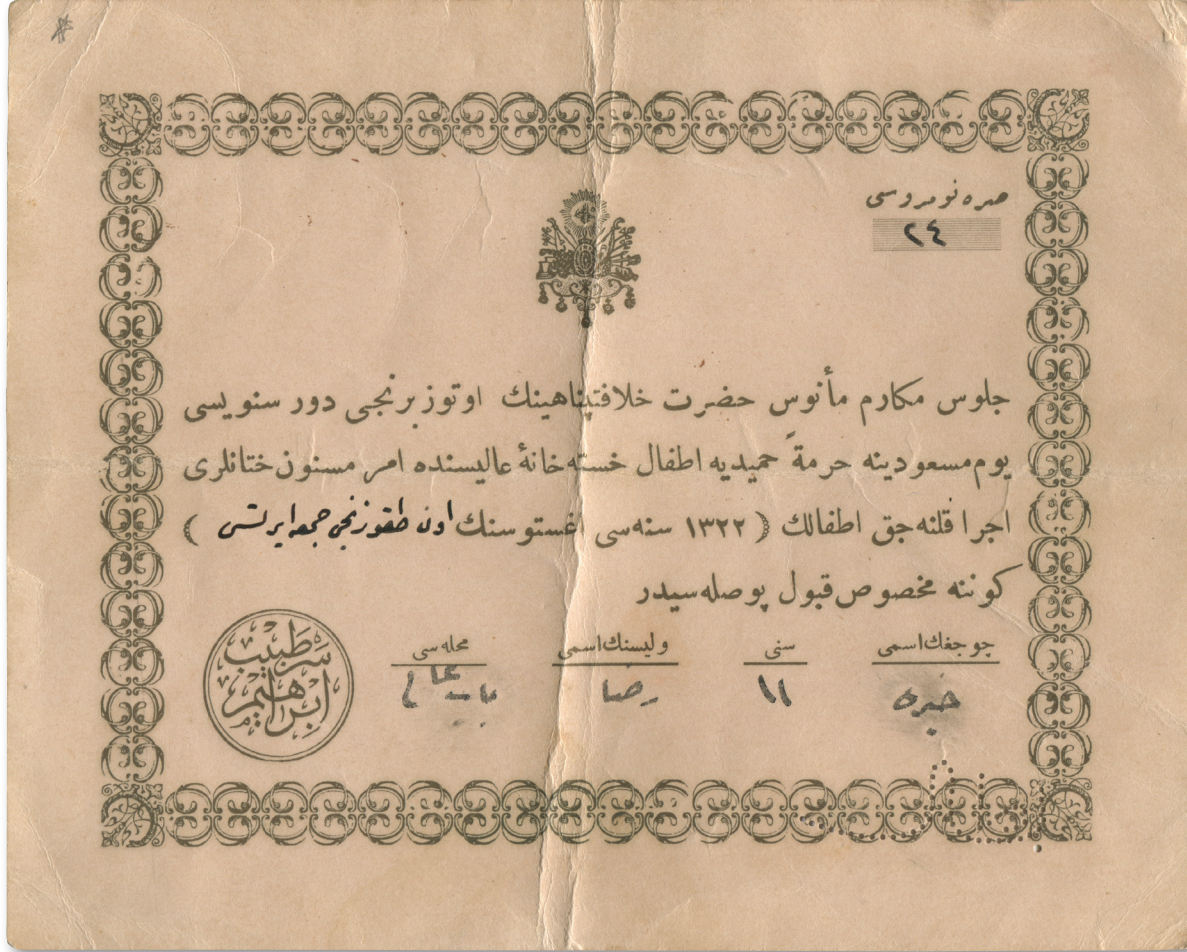 صره نومروسی
٢٤
جلوس مكارم مأنوس حضرت خلافتپناهینك اوتوز برنجی دور سنویسی
یوم مسعودینه حرمةً حمیدیه اطفال خسته خانۀ عالیسنده امر مسنون ختانلری
اجرا قلنه جق اطفالك ( ١٣٢٢ سنه سی اغستوسنك اون طقوزنجی جمعه ایرتسی )
كوننه مخصوص قبول پوصله سیدر
چوجغك اسمی سنی ولیسنك اسمی محله سی
١١ رضا
سرطبیب
ابراهیم